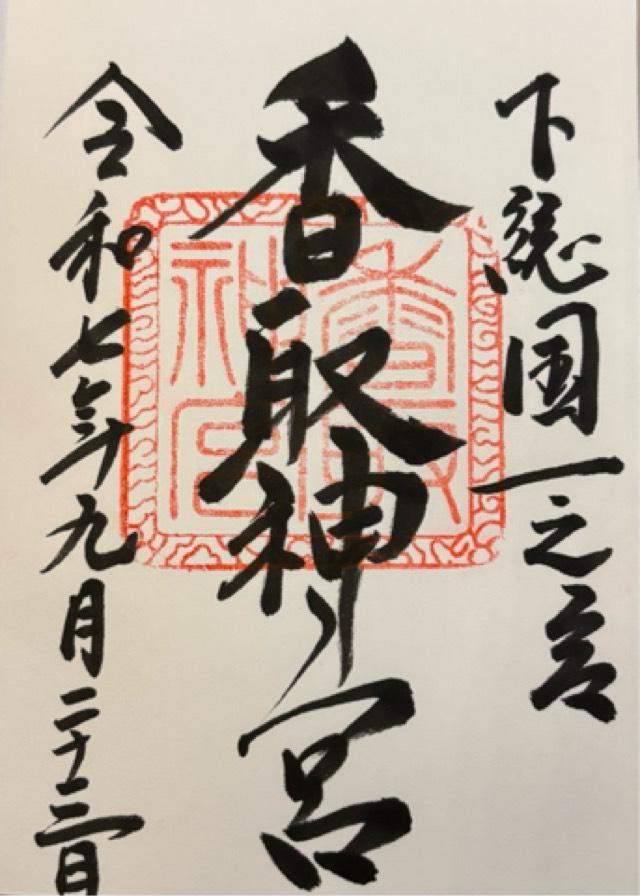 下総国一之宮
香取神宮
令和七年九月二十三日
香取神宮